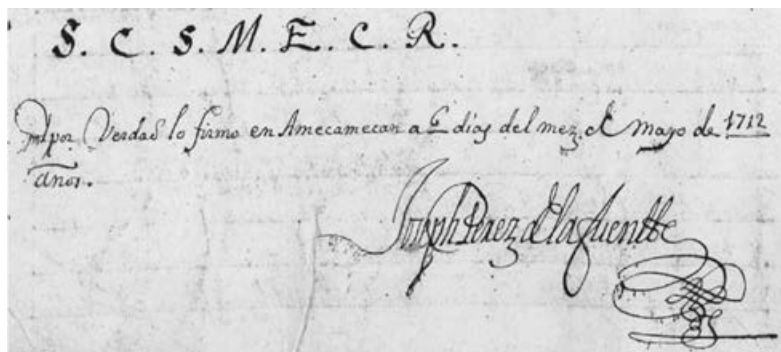 S. C. S. M. E. C. R.
por Verdad lo firmo en Amecamecan a 6 dias del mez de Mayo de 1712
años.
Joseph Perez de la fuentte